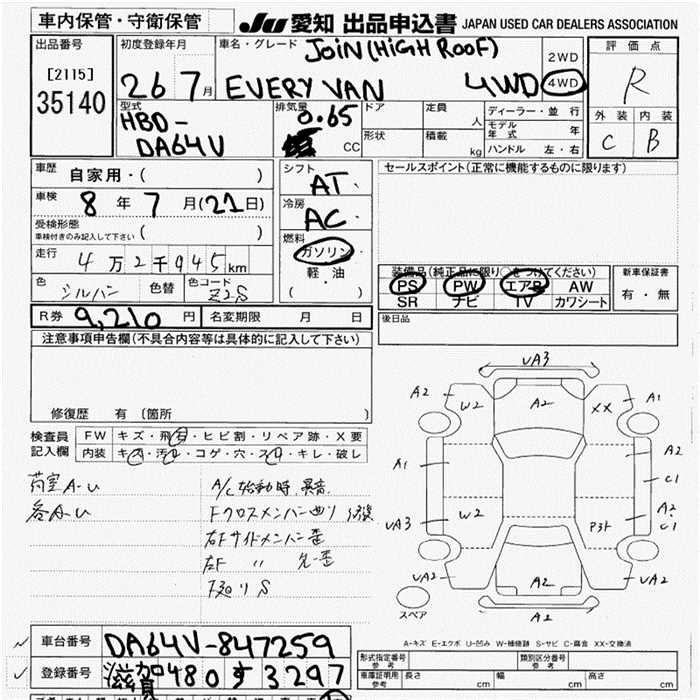 車内保管・守衛保管
JU 愛知 出品申込書 JAPAN USED CAR DEALERS ASSOCIATION
出品番号
[2115]
35140
初度登録年月
26 7月
車名・グレード
JOIN (HIGH ROOF)
EVERY VAN 4WD
2WD
4WD
評価点
R
外装 内装
C B
型式
HBD-
DA64V
排気量
0.65
CC
ドア
形状
定員
人
積載
kg
ディーラー・並行
モデル年式 年
ハンドル 左・右
車歴
自家用・( )
車検
8年7月(21日)
受検形態
車検付きのみ記入して下さい ( )
走行
4万2千945km
色
シルバン
色替
色コード
Z2S
シフト
AT
冷房
AC
燃料
ガソリン・
軽・油
( )
セールスポイント(正常に機能するものに限ります)
装備品(純正品に限り○をつけてください)
PS PW エアB AW
SR ナビ TV カワシート
新車保証書
有・無
R券 9,210円
名変期限 月 日
後日品
注意事項申告欄(不具合内容等は具体的に記入して下さい)
修復歴 有 〔箇所 〕
検査員記入欄
FW キズ・飛石・ヒビ割・リペア跡・X要
内装 キズ・汚レ・コゲ・穴・スレ・キレ・破レ
荷室A-U
各A-U
A/C始動時、異音
Fクロスメンバー曲り
右Fサイドメンバー歪
右F 〃
下廻りS
UA3
A2
W2
A2
XX
A1
A1
A2
C1
UA3
W2
P3ド
A2
C1
UA2
A2
UA2
A2
スペア
A-キズ E-エクボ U-凹み W-補修跡 S-サビ C-腐食 XX-交換済
車台番号 DA64V-847259
登録番号 滋賀 480 す 3297
形式指定番号 参考
類別区分番号 参考
車庫証明用 参考 長さ cm 幅 cm 高さ cm